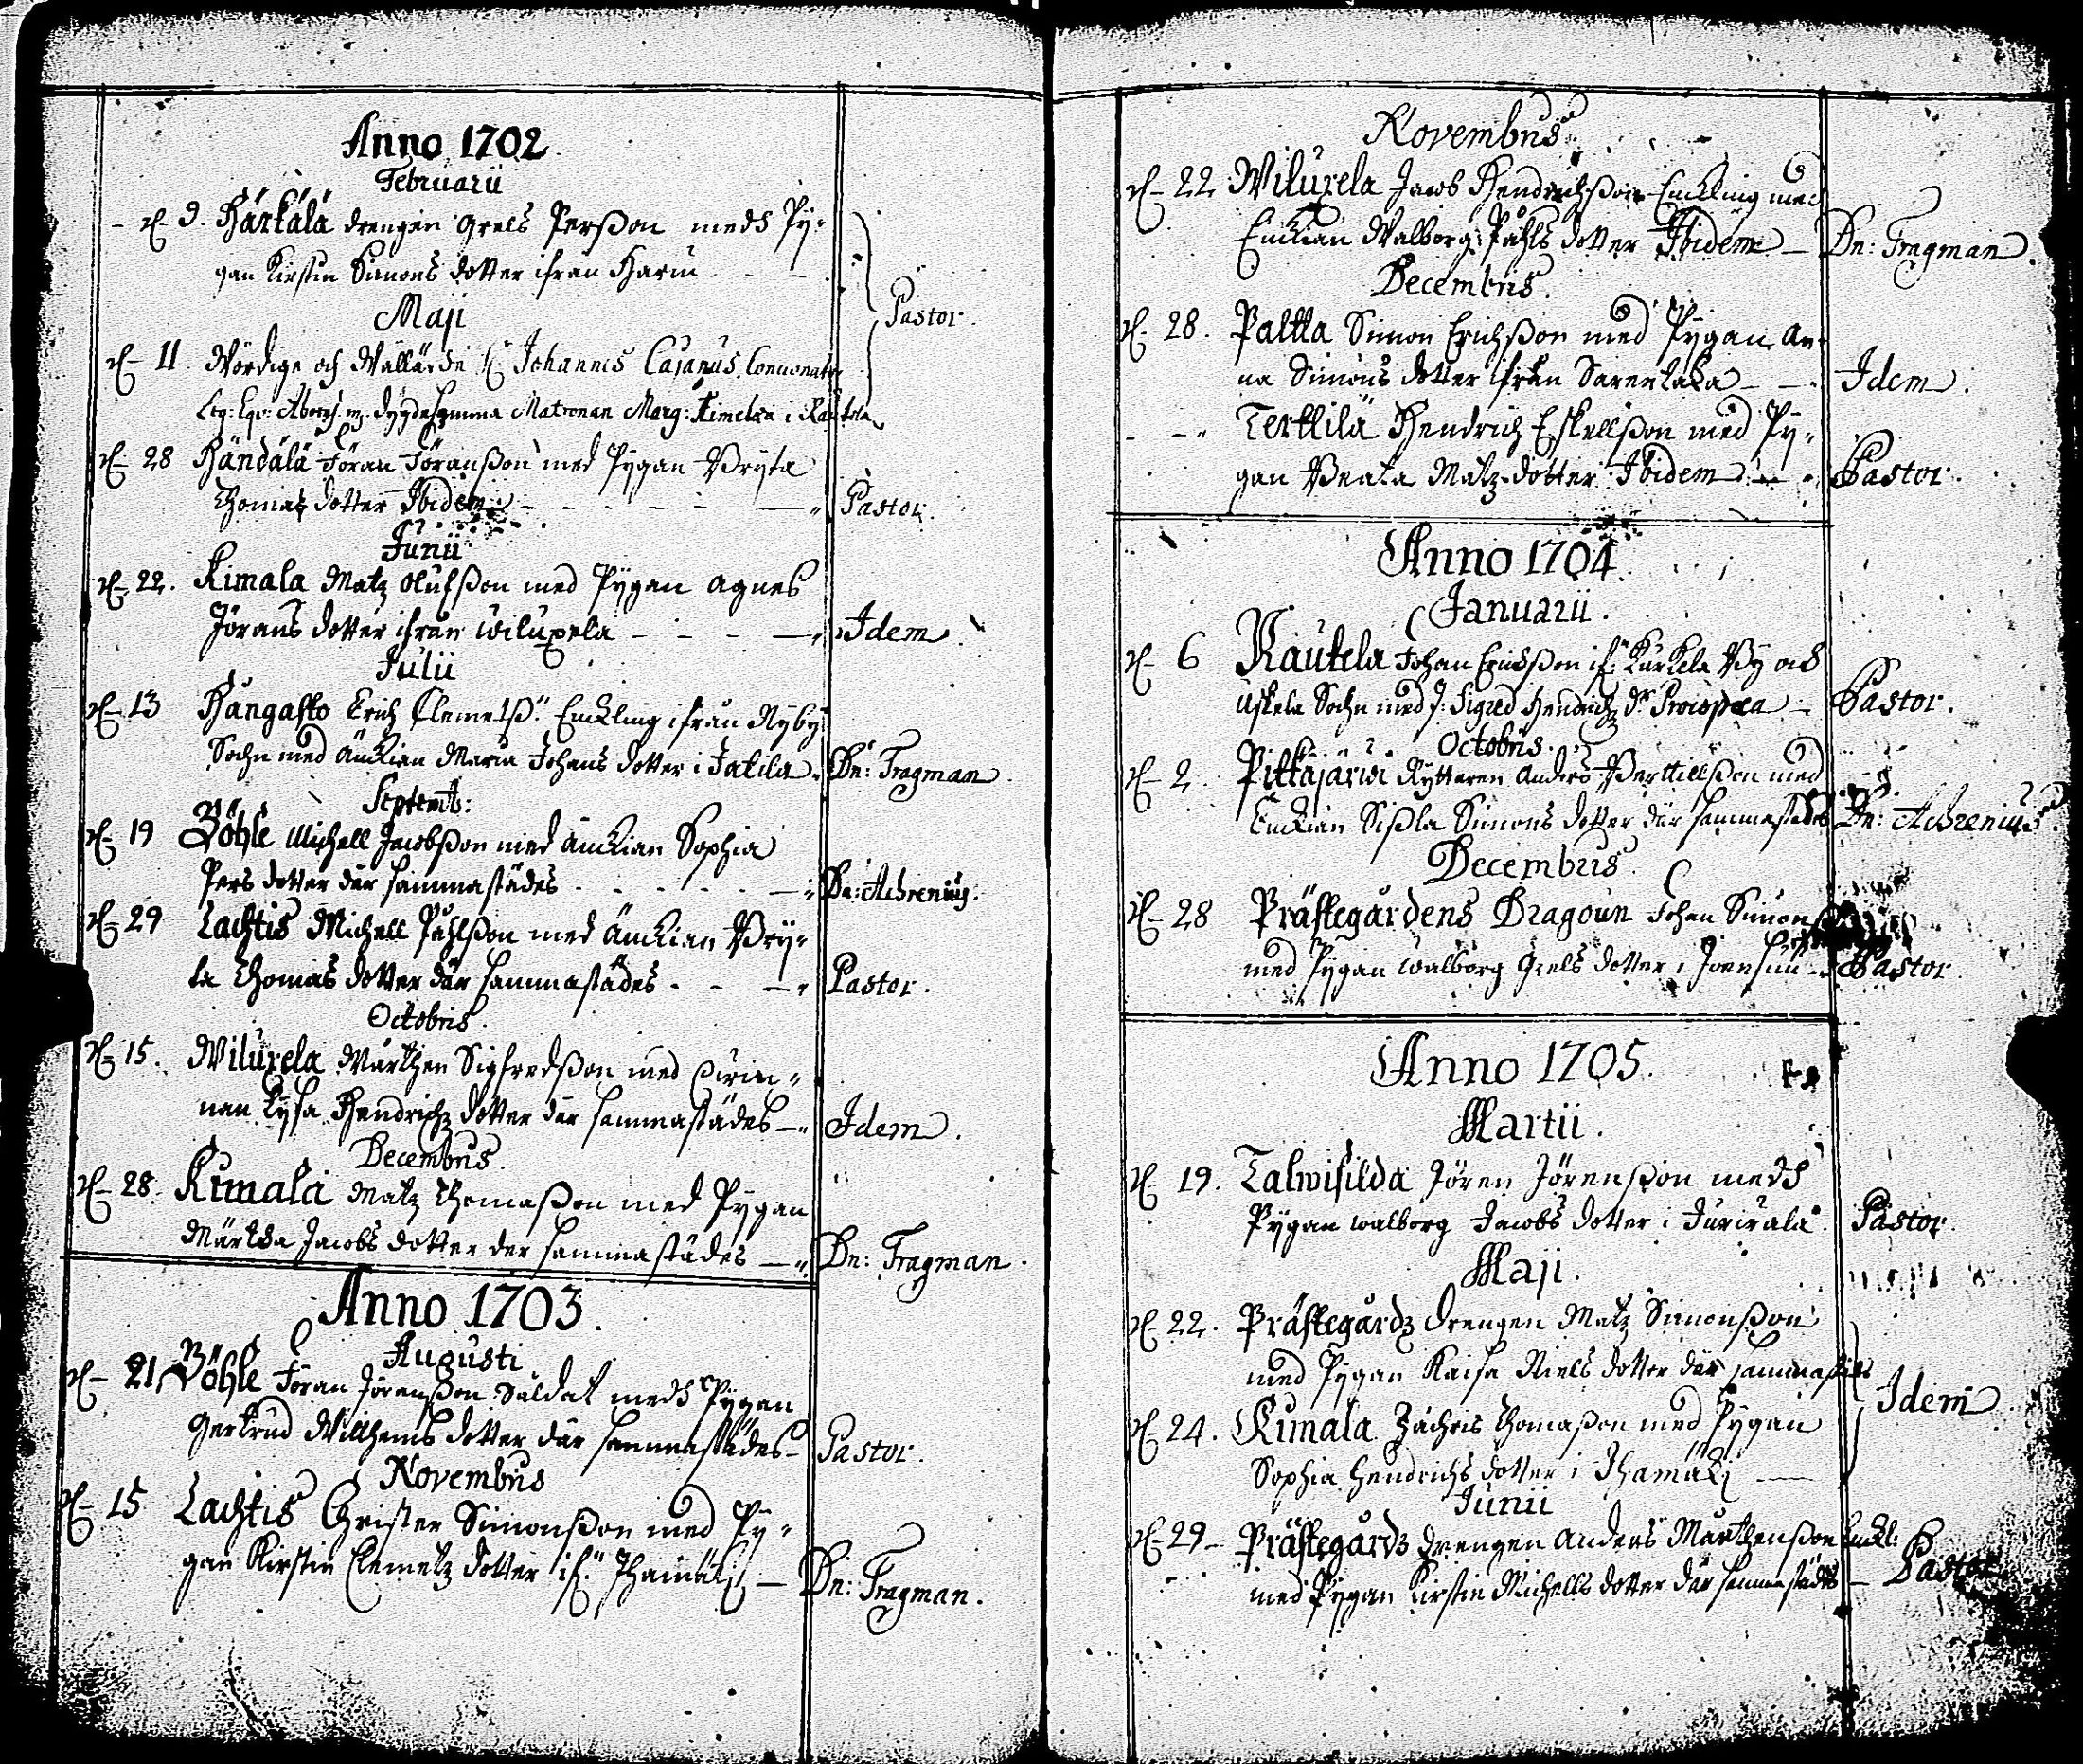 Anno 1702
Februarii
d. 9. Härkälä drengen Grels Perßon medh Py-
gan Kirstin Simons dotter ifrån Haru
Pastor.
Maji
d. 11. Wördige och Wällärde H. Johannes Cajanus
m. dygdesamma Matronan Marg:
d. 28 Händälä Jöran Jöranßon med Pygan Bryta
Thomas dotter Ibidem Pastor.
Junii
d. 22. Rimala Matz Olufßon med Pygan Agnes
Jörans dotter ifrån Wiluxela Idem.
Julii
d. 13 Hångasto Erich Clemetß. Enckling ifrån Nyby
Sochn med Änckian Maria Johans dotter i Jatila Dn: Fragman.
Septemb:
d. 19 Böhle Michell Jacobßon med änckian Sophia
Pers dotter där sammastädes Dn: Achrenius.
d. 29 Lachtis Michell Påhlßon med Änckian Bry-
ta Thomas dotter där sammastädes Pastor.
Octobris.
d. 15. Wiluxela Mårthen Sigfredßon med
nan Lysa Hendrichz dotter där sammastädes Idem.
Decembris.
d. 28. Rimala Matz Thomaßon med Pygan
Märtha Jacobs dotter der sammastädes Dn: Fragman.
Anno 1703.
Augusti
d. 21 Böhle Jöran Jörenßon Saldat medh Pygan
Gertrud Willhems dotter där sammastädes Pastor.
Novembris
d. 15 Lachtis Christer Simonßon med Py-
gan Kirstin Clemetz dotter if. Ihamäki Dn: Fragman.
Novembris.
d. 22 Wiluxela Jacob Hendrichßon Enckling med
Enckian Walborg Påhls dotter Ibidem Dn: Fragman.
Decembris.
d. 28. Paltta Simon Erichßon med Pygan An-
na Simons dotter ifrån Sarentaka Idem.
Terttilä Hendrich Eskellßon med Py-
gan Beata Matz dotter Ibidem Pastor.
Anno 1704.
Januarii.
d. 6 Rautela Johan Erichßon if. Kurkela By och
Uskela Sochn med J. Sigred Hendrichz dr. Pastor.
Octobris.
d. 2. Pitkäjärwi Rytteren Anders Berttillßon med
Enckian Sißla Simons dotter där sammastädes Dn: Achrenius.
Decembris.
d. 28 Prästegårdens Dragoun Johan Simonß
med Pygan Walborg Grels dotter i Joensuu Pastor.
Anno 1705.
Martii.
d. 19. Talwisilda Jören Jörenßon medh
Pygan Walborg Jacobs dotter i Juvirala Pastor.
Maji.
d. 22. Prästegårdz drengen Matz Simonßon
med Pygan Kaisa Niels dotter där sammastädes
Idem
d. 24. Rimala Zachris Thomaßon med Pygan
Sophia Hendrichs dotter i Ihamäki
Junii
d. 29 Prästegårdz drengen Anders Mårthenßon Enckl:
med Pygan Kirstin Michells dotter där sammastädes Pastor